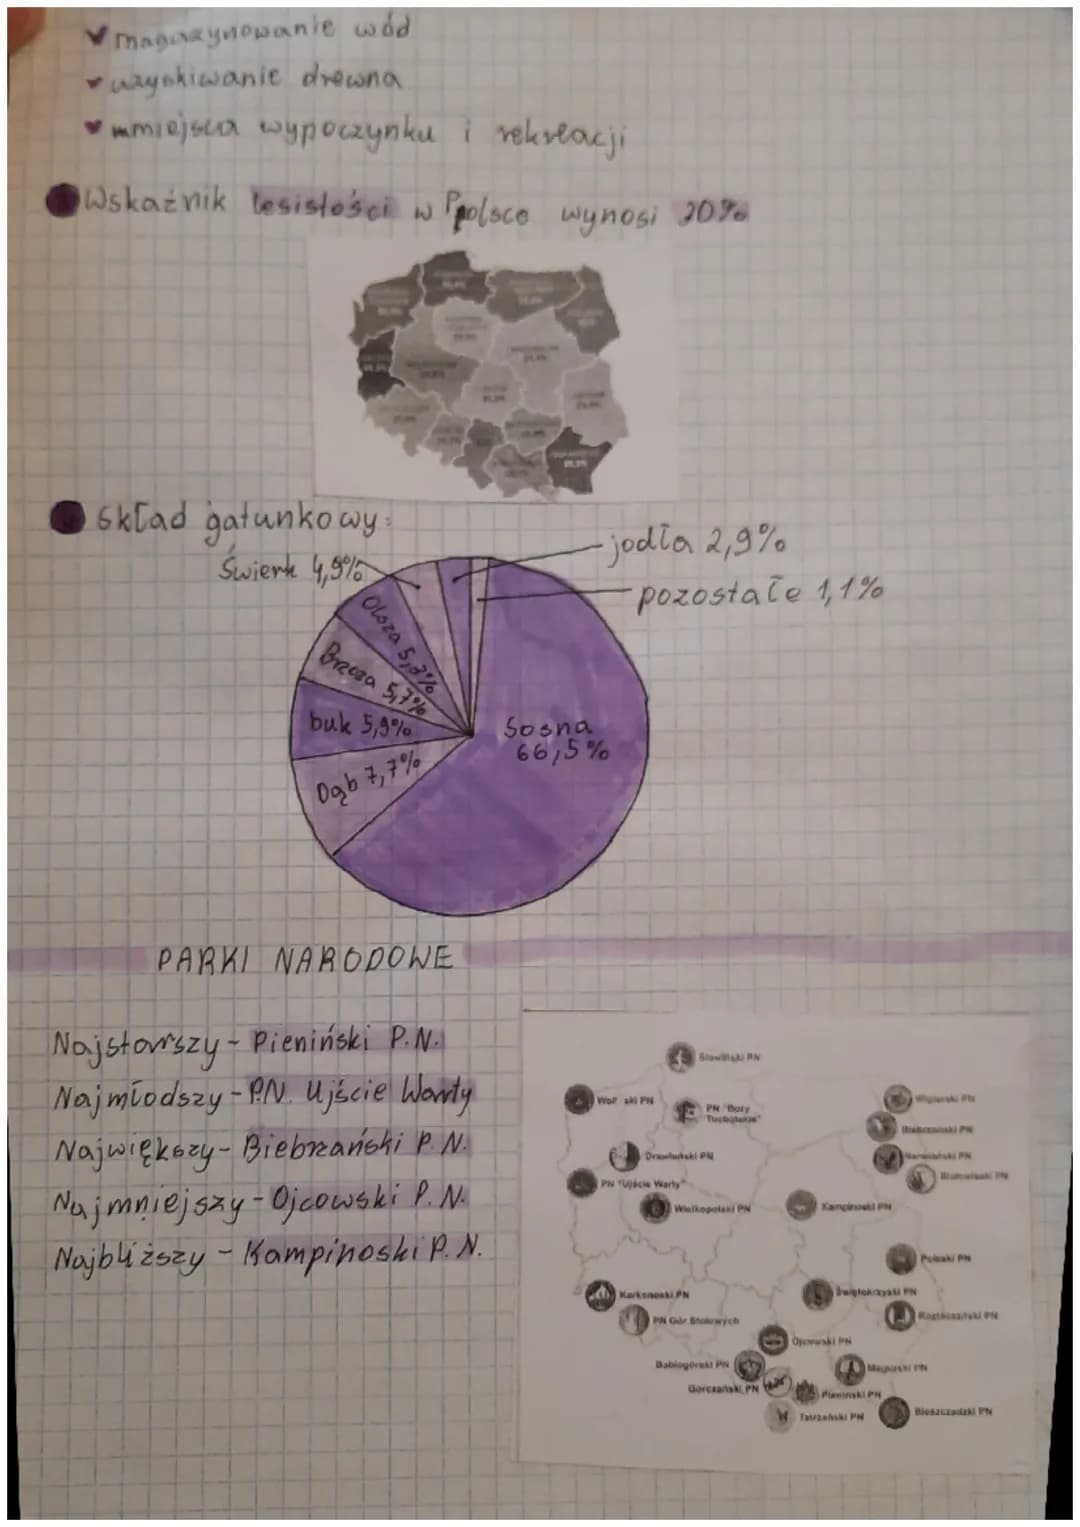 magazynowanie wód
uzyskiwanie drewna
mmiejsca wypoczynku i rekreacji
Wskaźnik lesistości w Ppolsce wynosi 20%
skład gatunkowy:
jodła 2,9%
Świerk 4,9%
pozostałe 1,1%
Olsza
Brzoza 5,7%
buk 5,9%
Sosna
66,5%
Dąb 7,7%
PARKI NARODOWE
Najstarszy - Pieniński P.N.
Najmłodszy - P.N. Ujście Warty
Największy - Biebrzański P.N.
Najmniejszy - Ojcowski P.N.
Najbliższy - Kampinoski P.N.
Słowiński PN
PN "Bory
Tucholskie"
Wigierski PN
Biebrzański PN
Drawieński PN
Narwiański PN
Białowieski PN
PN "Ujście Warty"
Wielkopolski PN
Kampinoski PN
Poleski PN
Karkonoski PN
Świętokrzyski PN
PN Gór Stołowych
Roztoczański PN
Ojcowski PN
Babiogórski PN
Magurski PN
Gorczański PN
Pieniński PN
Tatrzański PN
Bieszczadzki PN